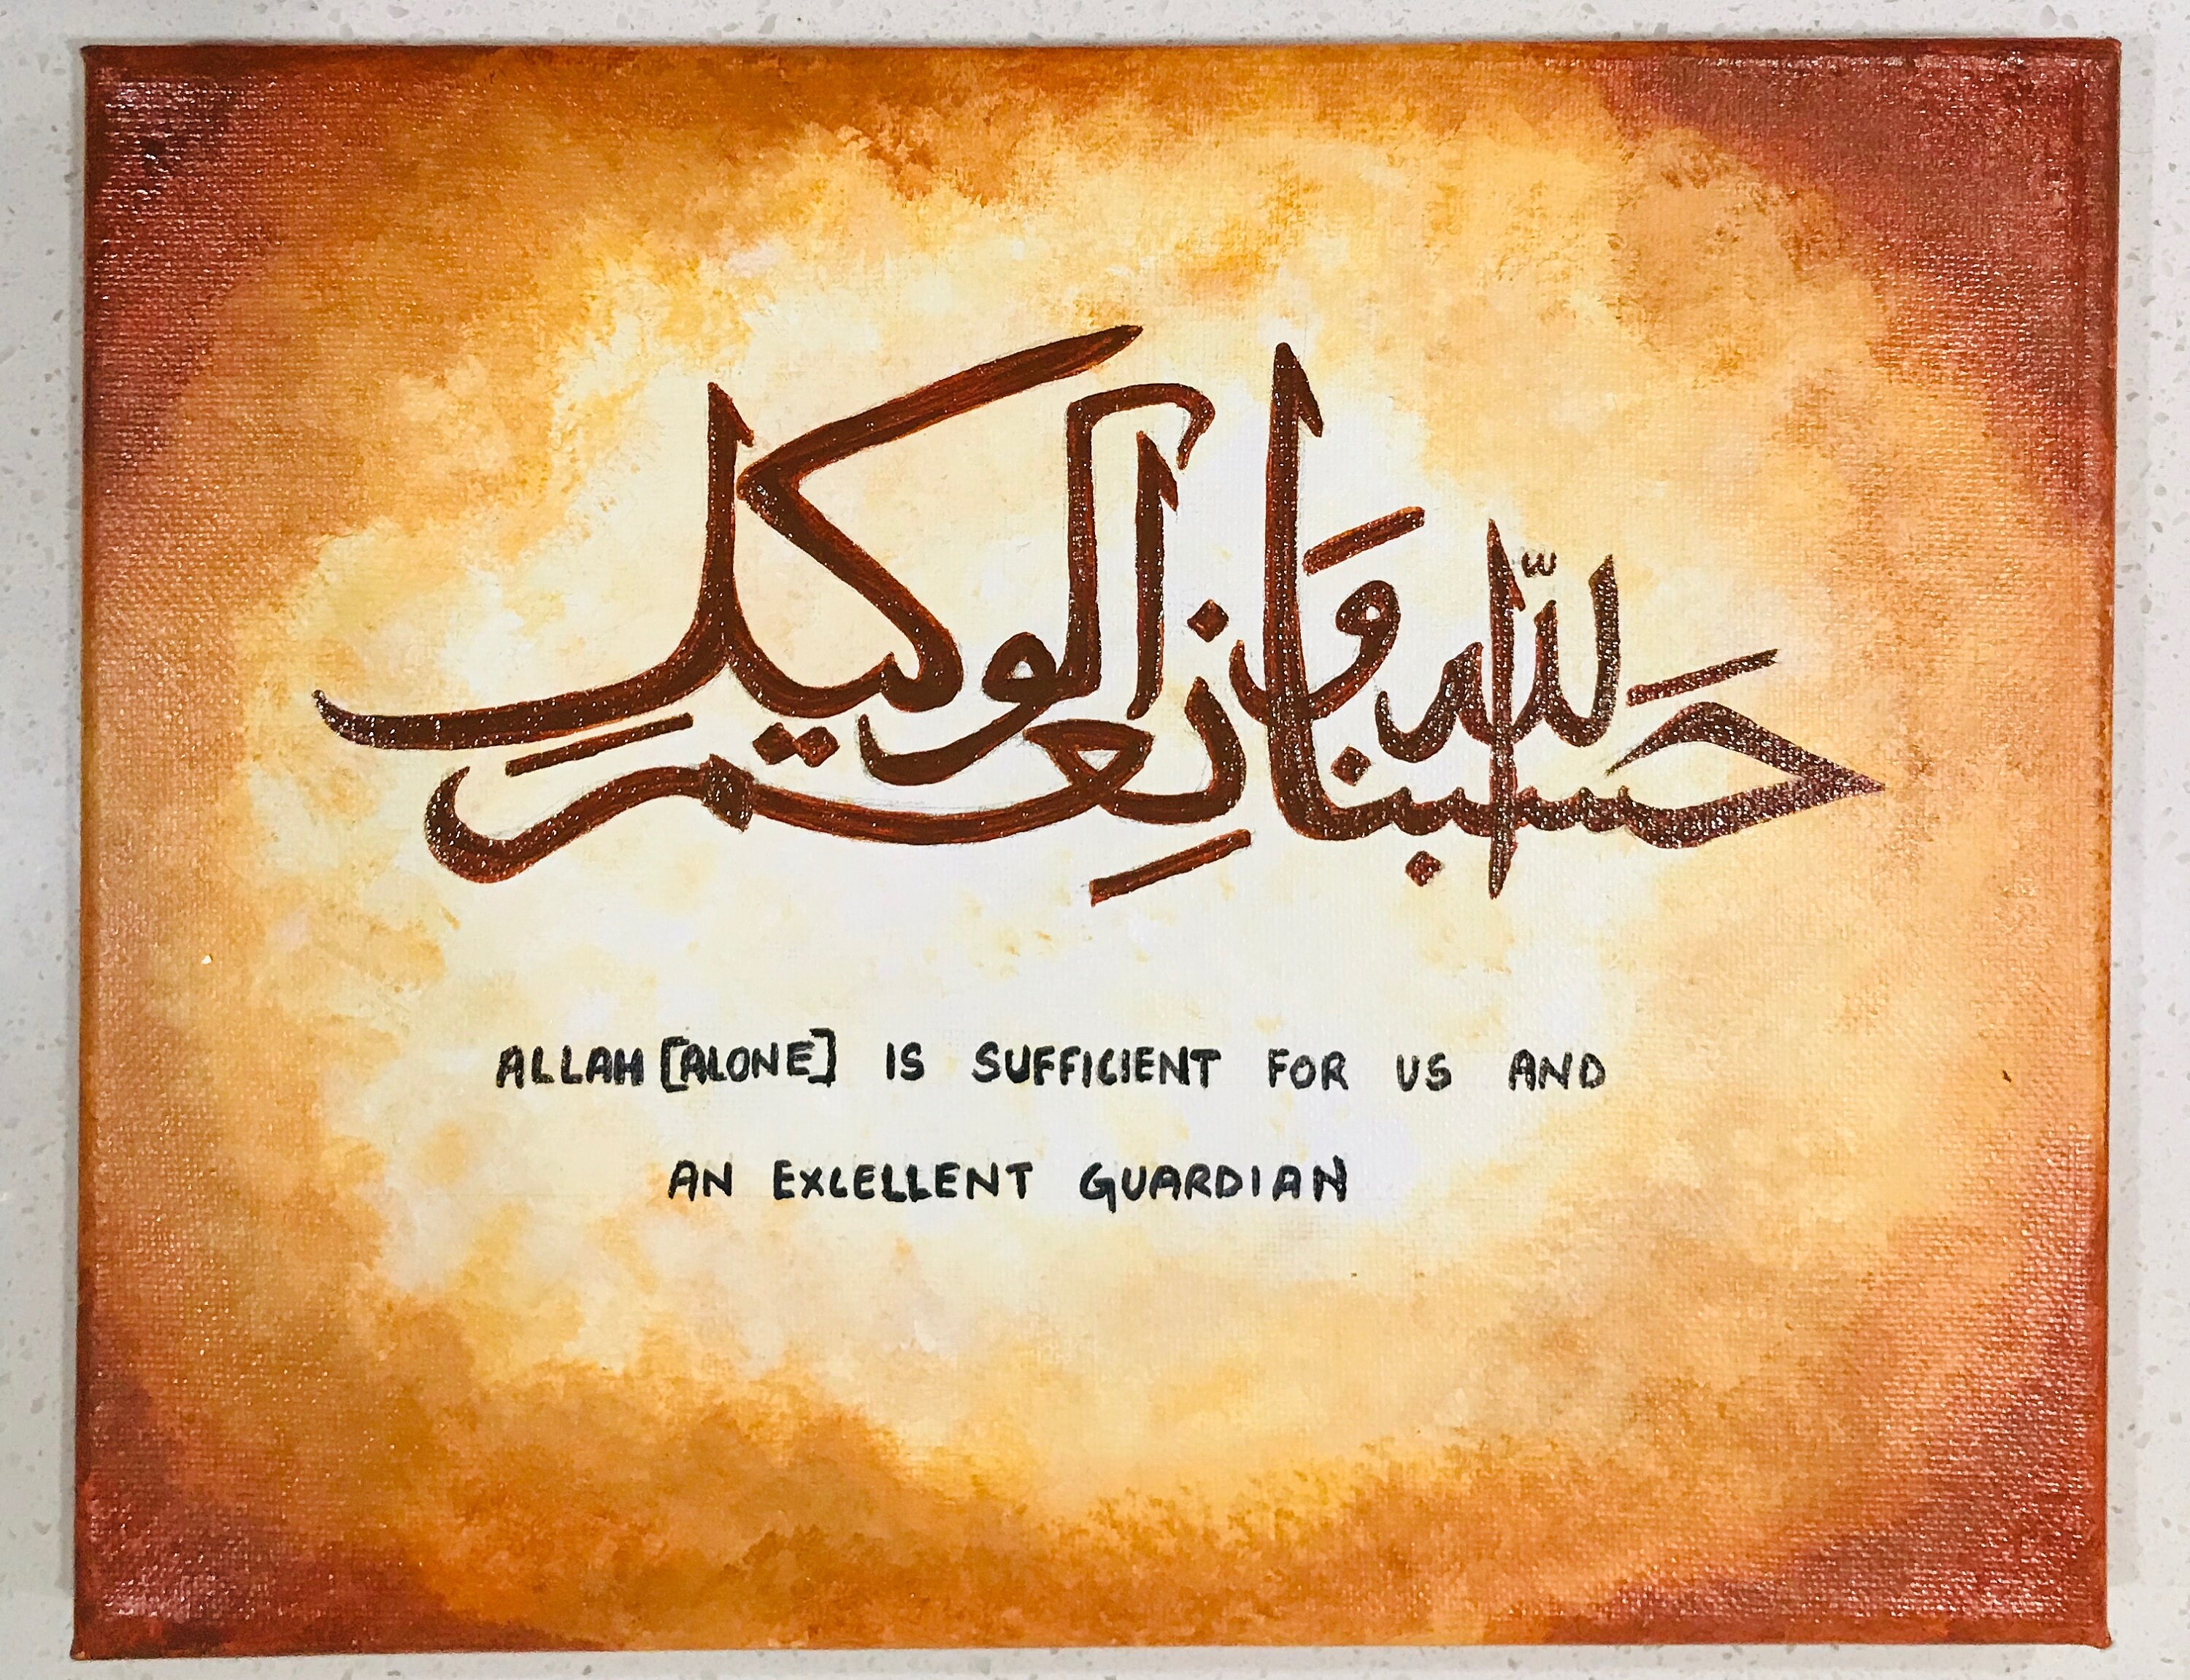 حَسبنا الله وَنِعمَ الوكيل
ALLAH [ALONE] IS SUFFICIENT FOR US AND
AN EXCELLENT GUARDIAN